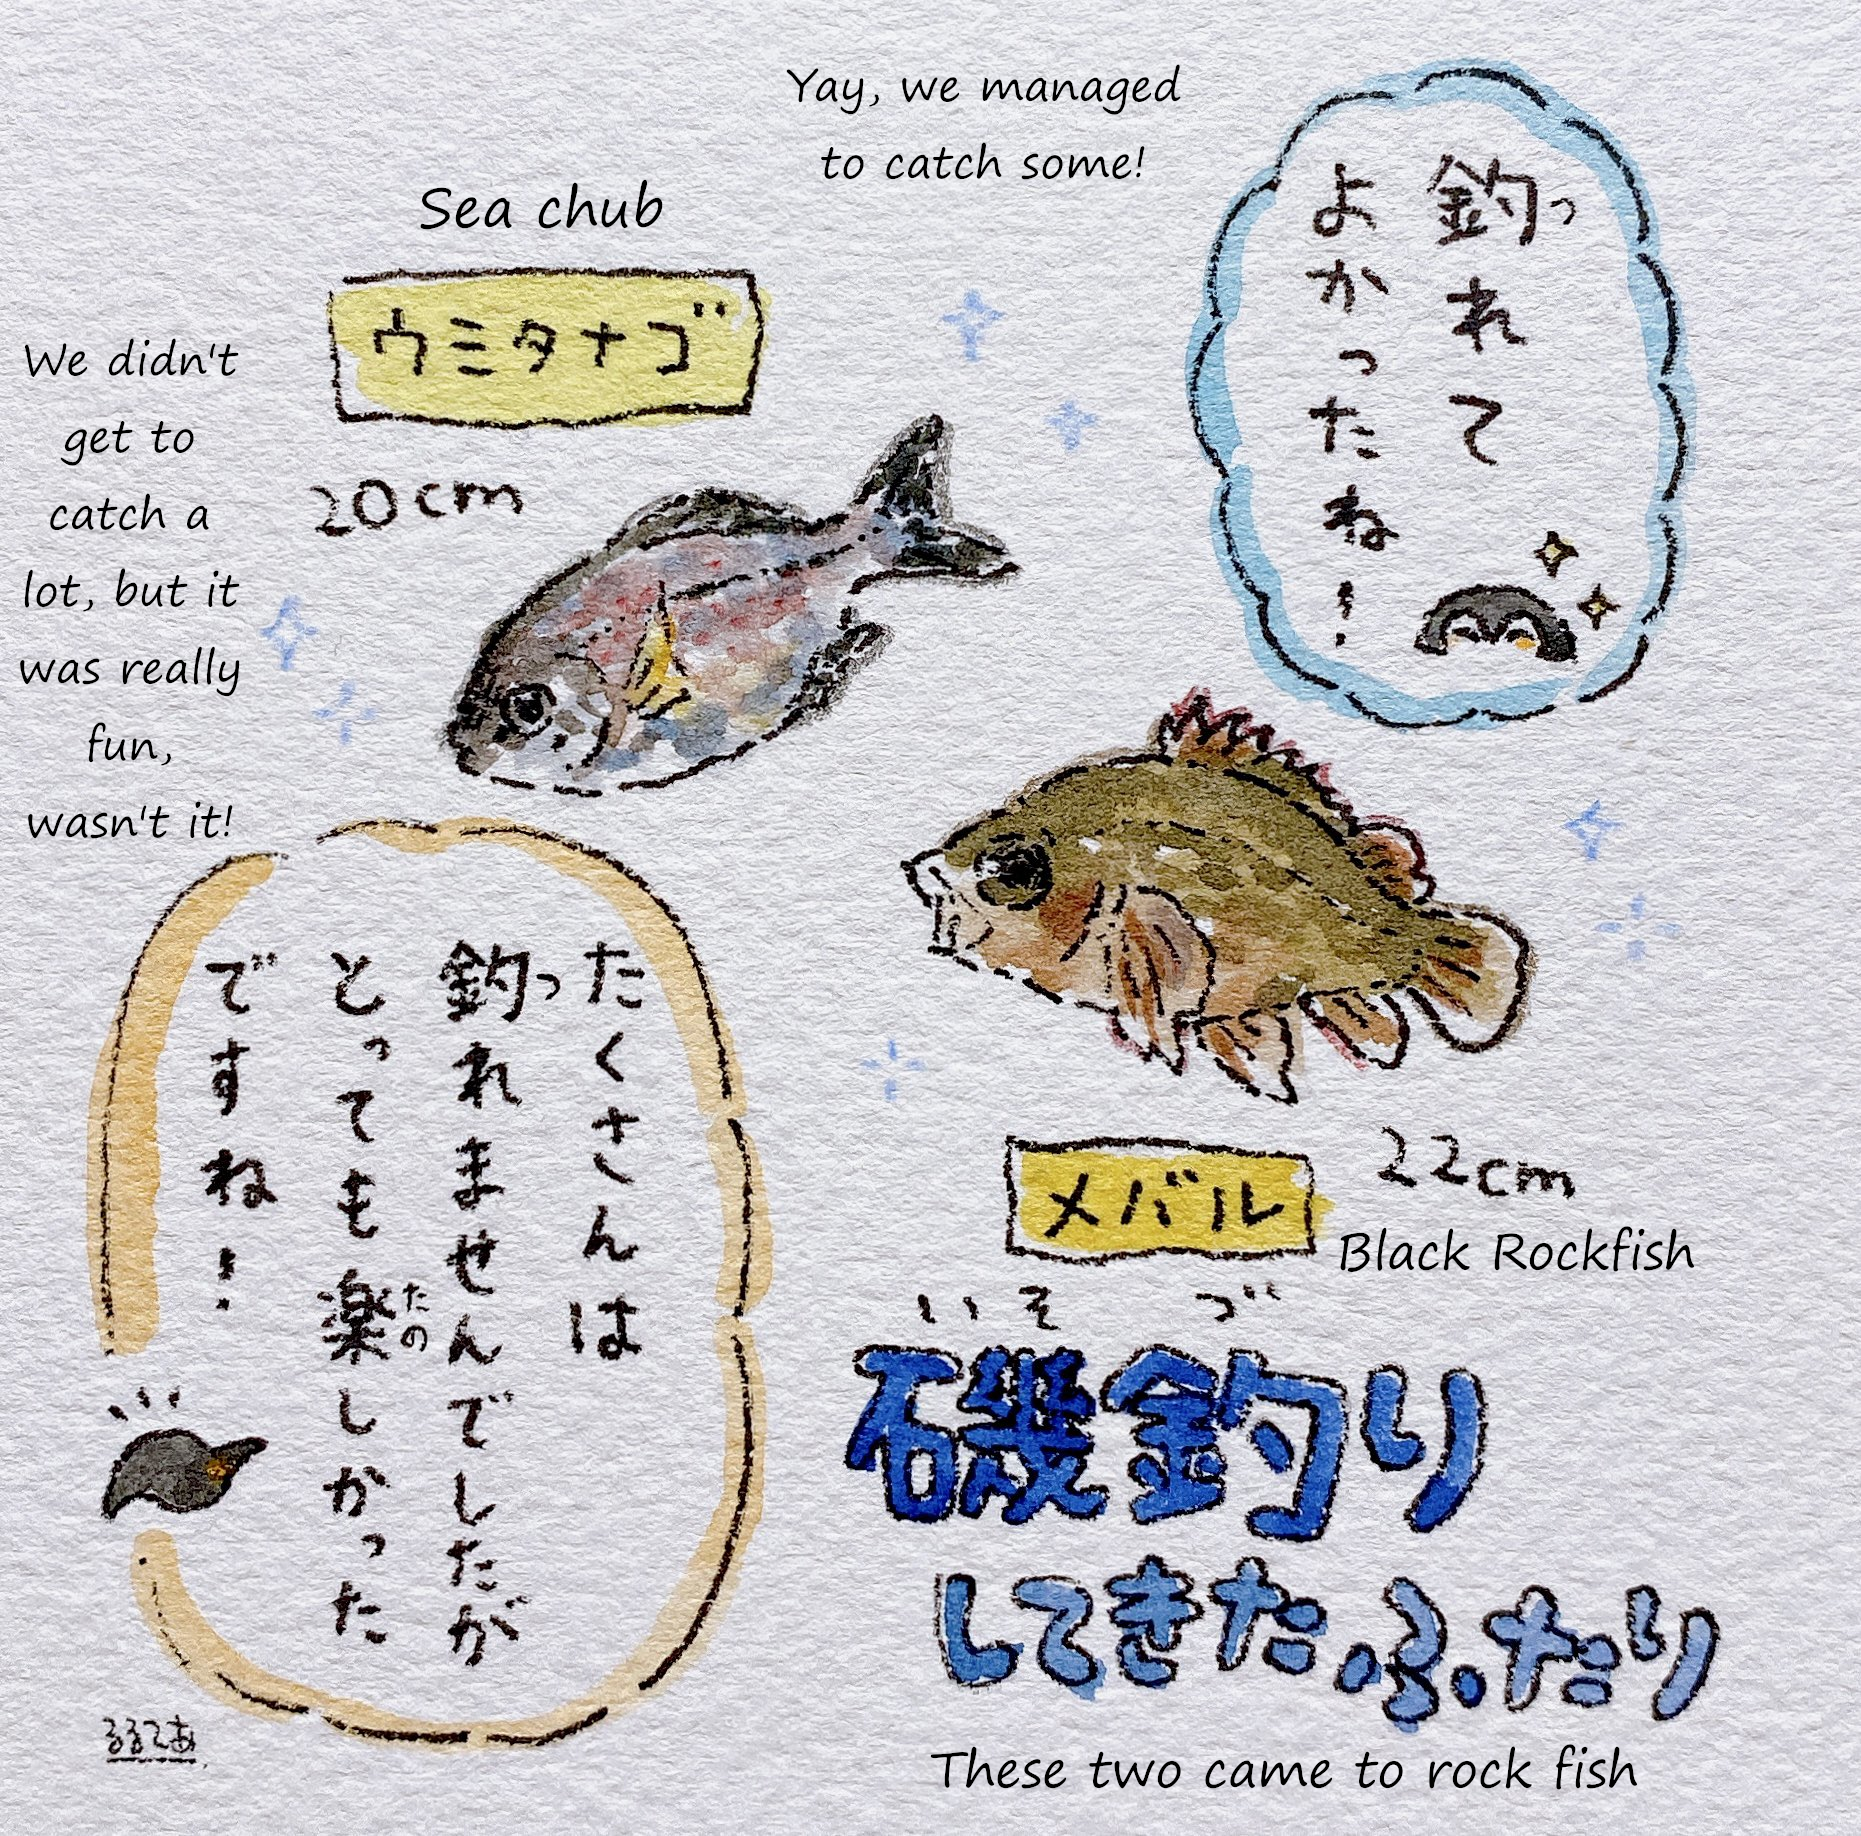 Yay, we managed
to catch some!
釣って
れて
よかったね!
Sea chub
ウミタナゴ
20cm
We didn't
get to
catch a
lot, but it
was really
fun,
wasn't it!
たくさんは
釣れませんでしたが
っ
とっても楽しかった
たの
ですね!
メバル
22cm
Black Rockfish
いそ づ
磯釣り
してきたふたり
These two came to rock fish
るるてあ